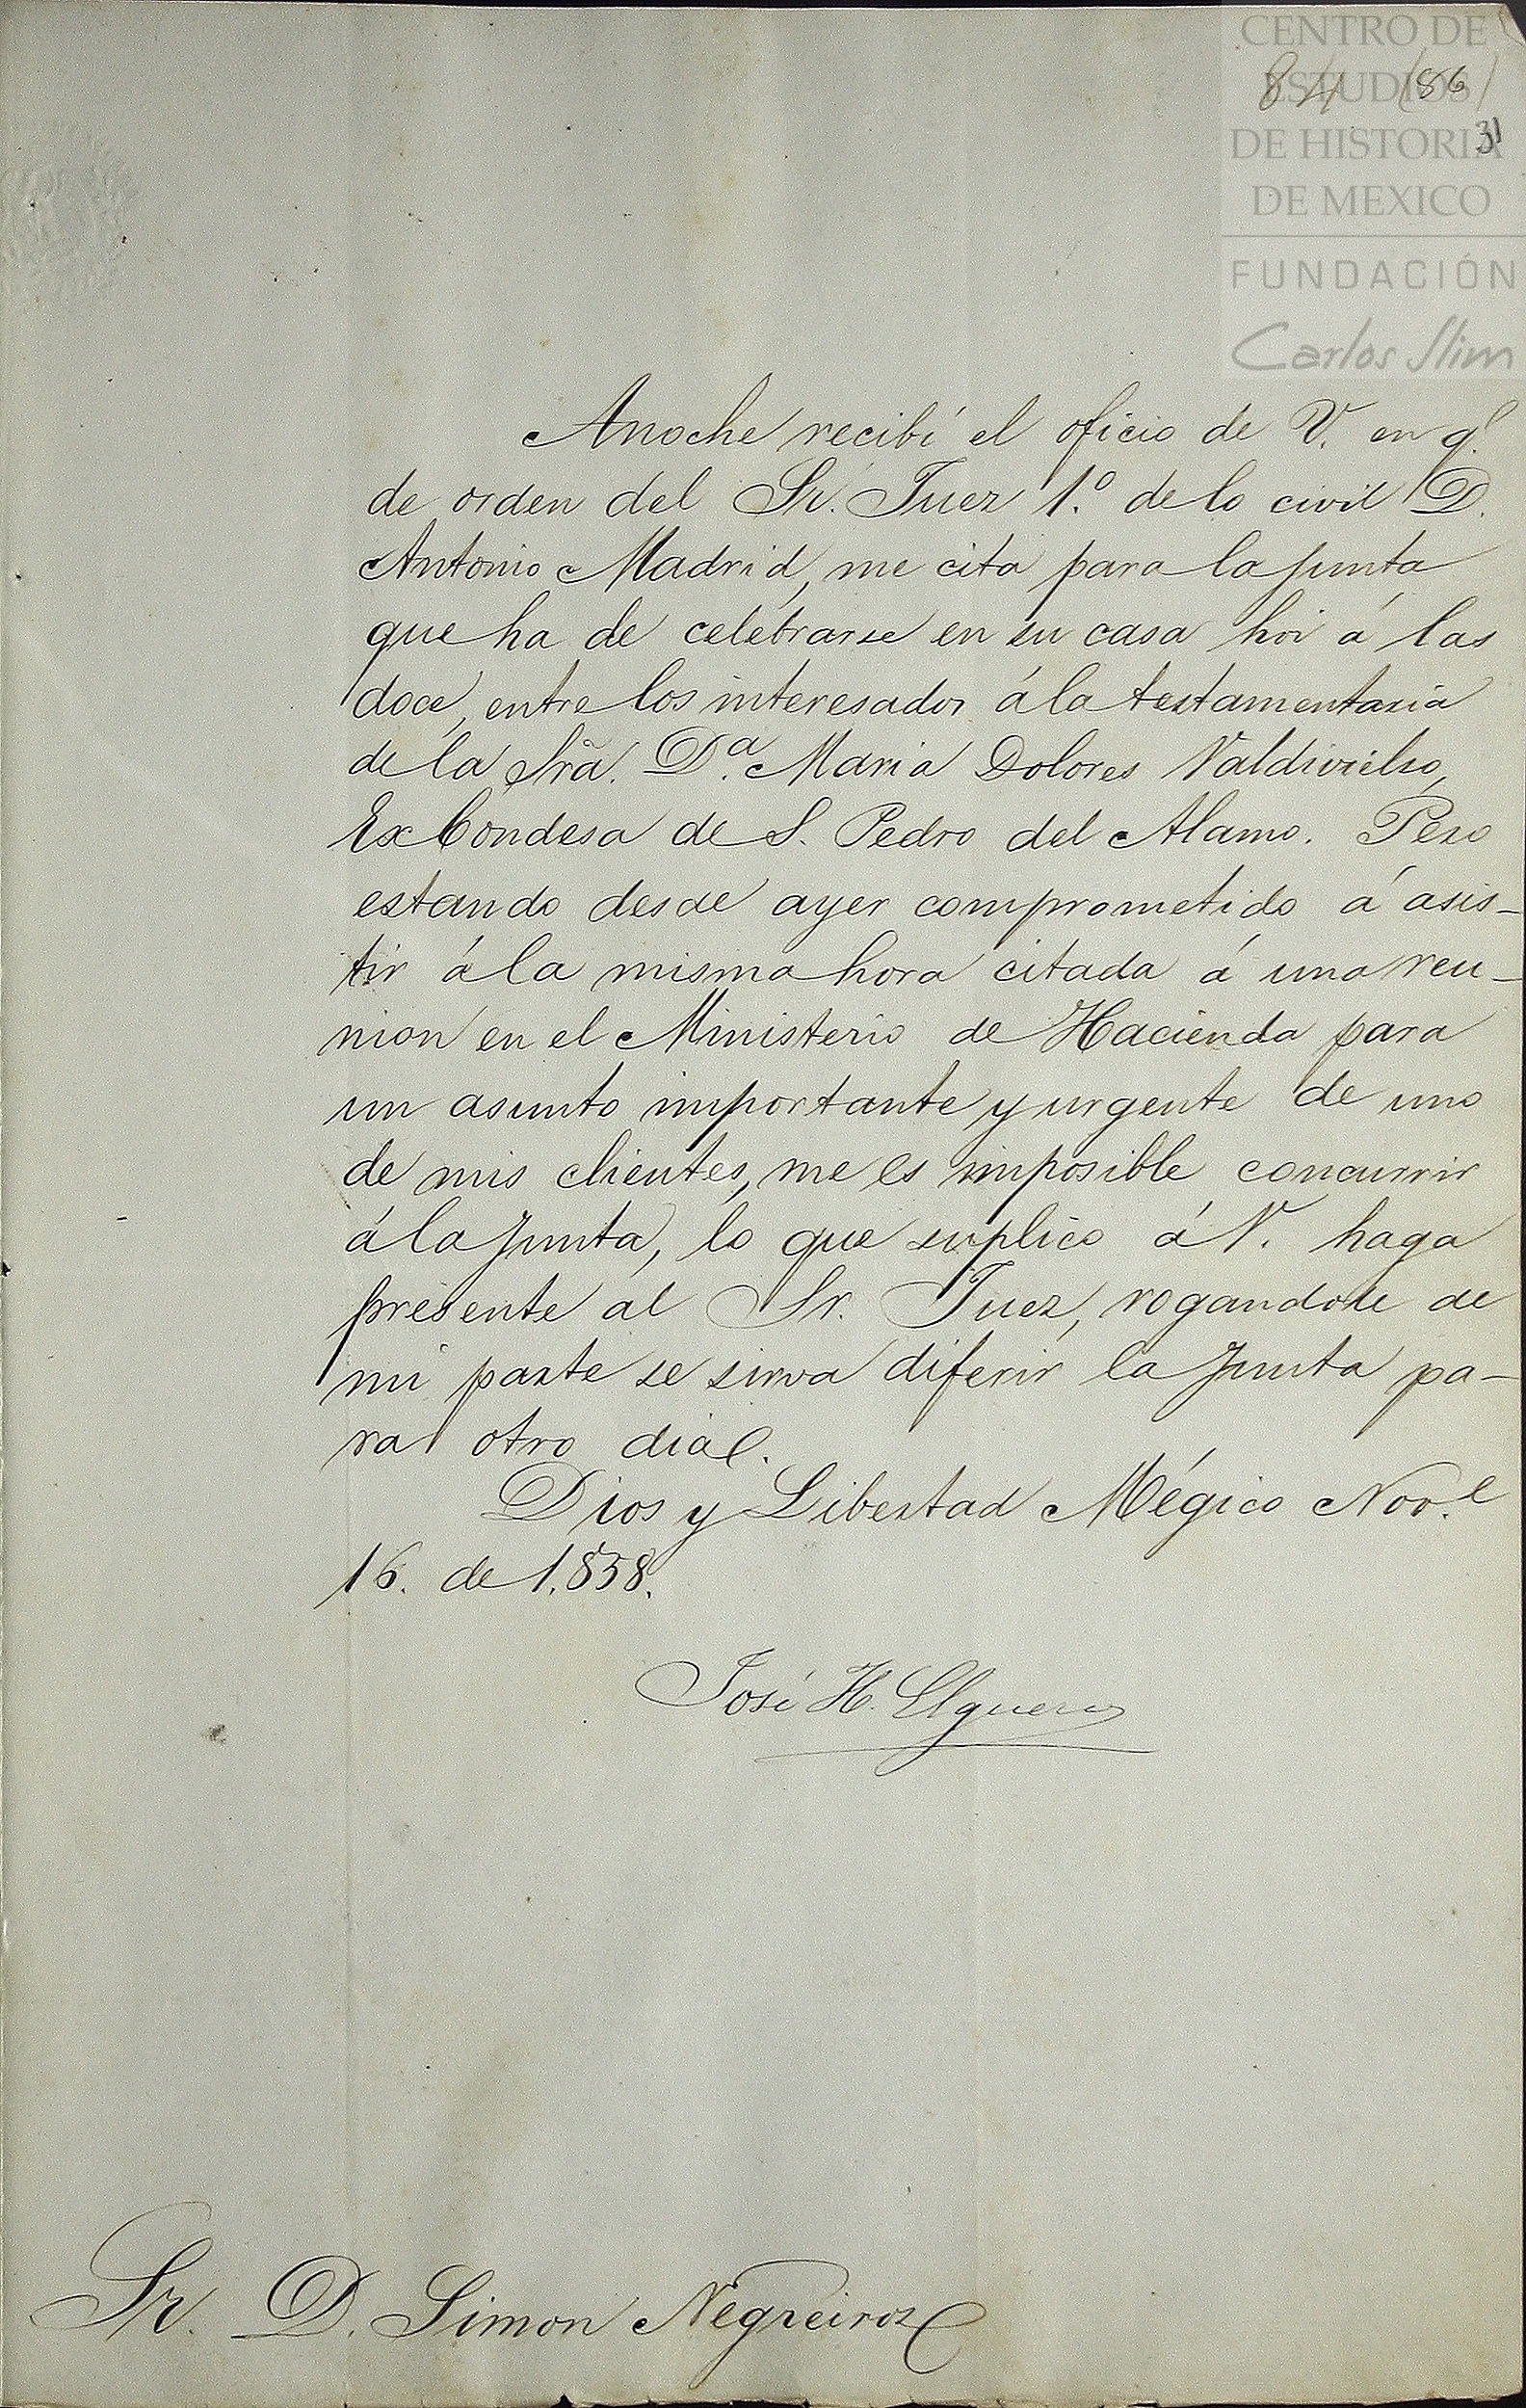 CENTRO DE
ESTUDIOS
DE HISTORIA
DE MEXICO
FUNDACIÓN
Carlos Slim
84 (86)
31
Anoche recibí el oficio de V. en q.e
de orden del Sr. Juez 1.º de lo civil D.
Antonio Madrid, me cita para la junta
que ha de celebrarse en su casa hoi á las
doce, entre los interesados á la testamentaria
de la Srã. D.ª Maria Dolores Valdivielso,
Ex Condesa de S. Pedro del Alamo. Pero
estando desde ayer comprometido á asis-
tir á la misma hora citada á una reu-
nion en el Ministerio de Hacienda para
un asunto importante y urgente de uno
de mis clientes, me es imposible concurrir
á la Junta, lo que suplico á V. haga
presente al Sr. Juez, rogandole de
mi parte se sirva diferir la Junta pa-
ra otro dia.
Dios y Libertad Mégico Nov.e
16. de 1,858.
José H. Elguero
Sr. D. Simon Negreiros